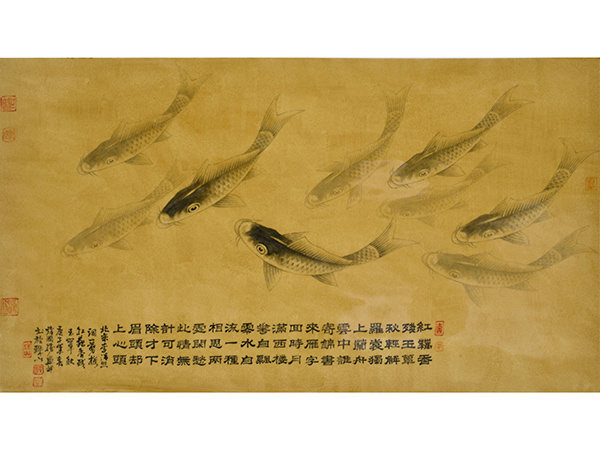 紅藕香
殘玉簟
秋輕解
羅裳獨
上蘭舟
雲中誰
寄錦書
來雁字
回時月
滿西樓
花自飄
零水自
流一種
相思兩
處閒愁
此情無
計可消
除才下
眉頭却
上心頭
北宋李清照
詞一剪梅
紅藕香殘
玉簟秋
庚子年春